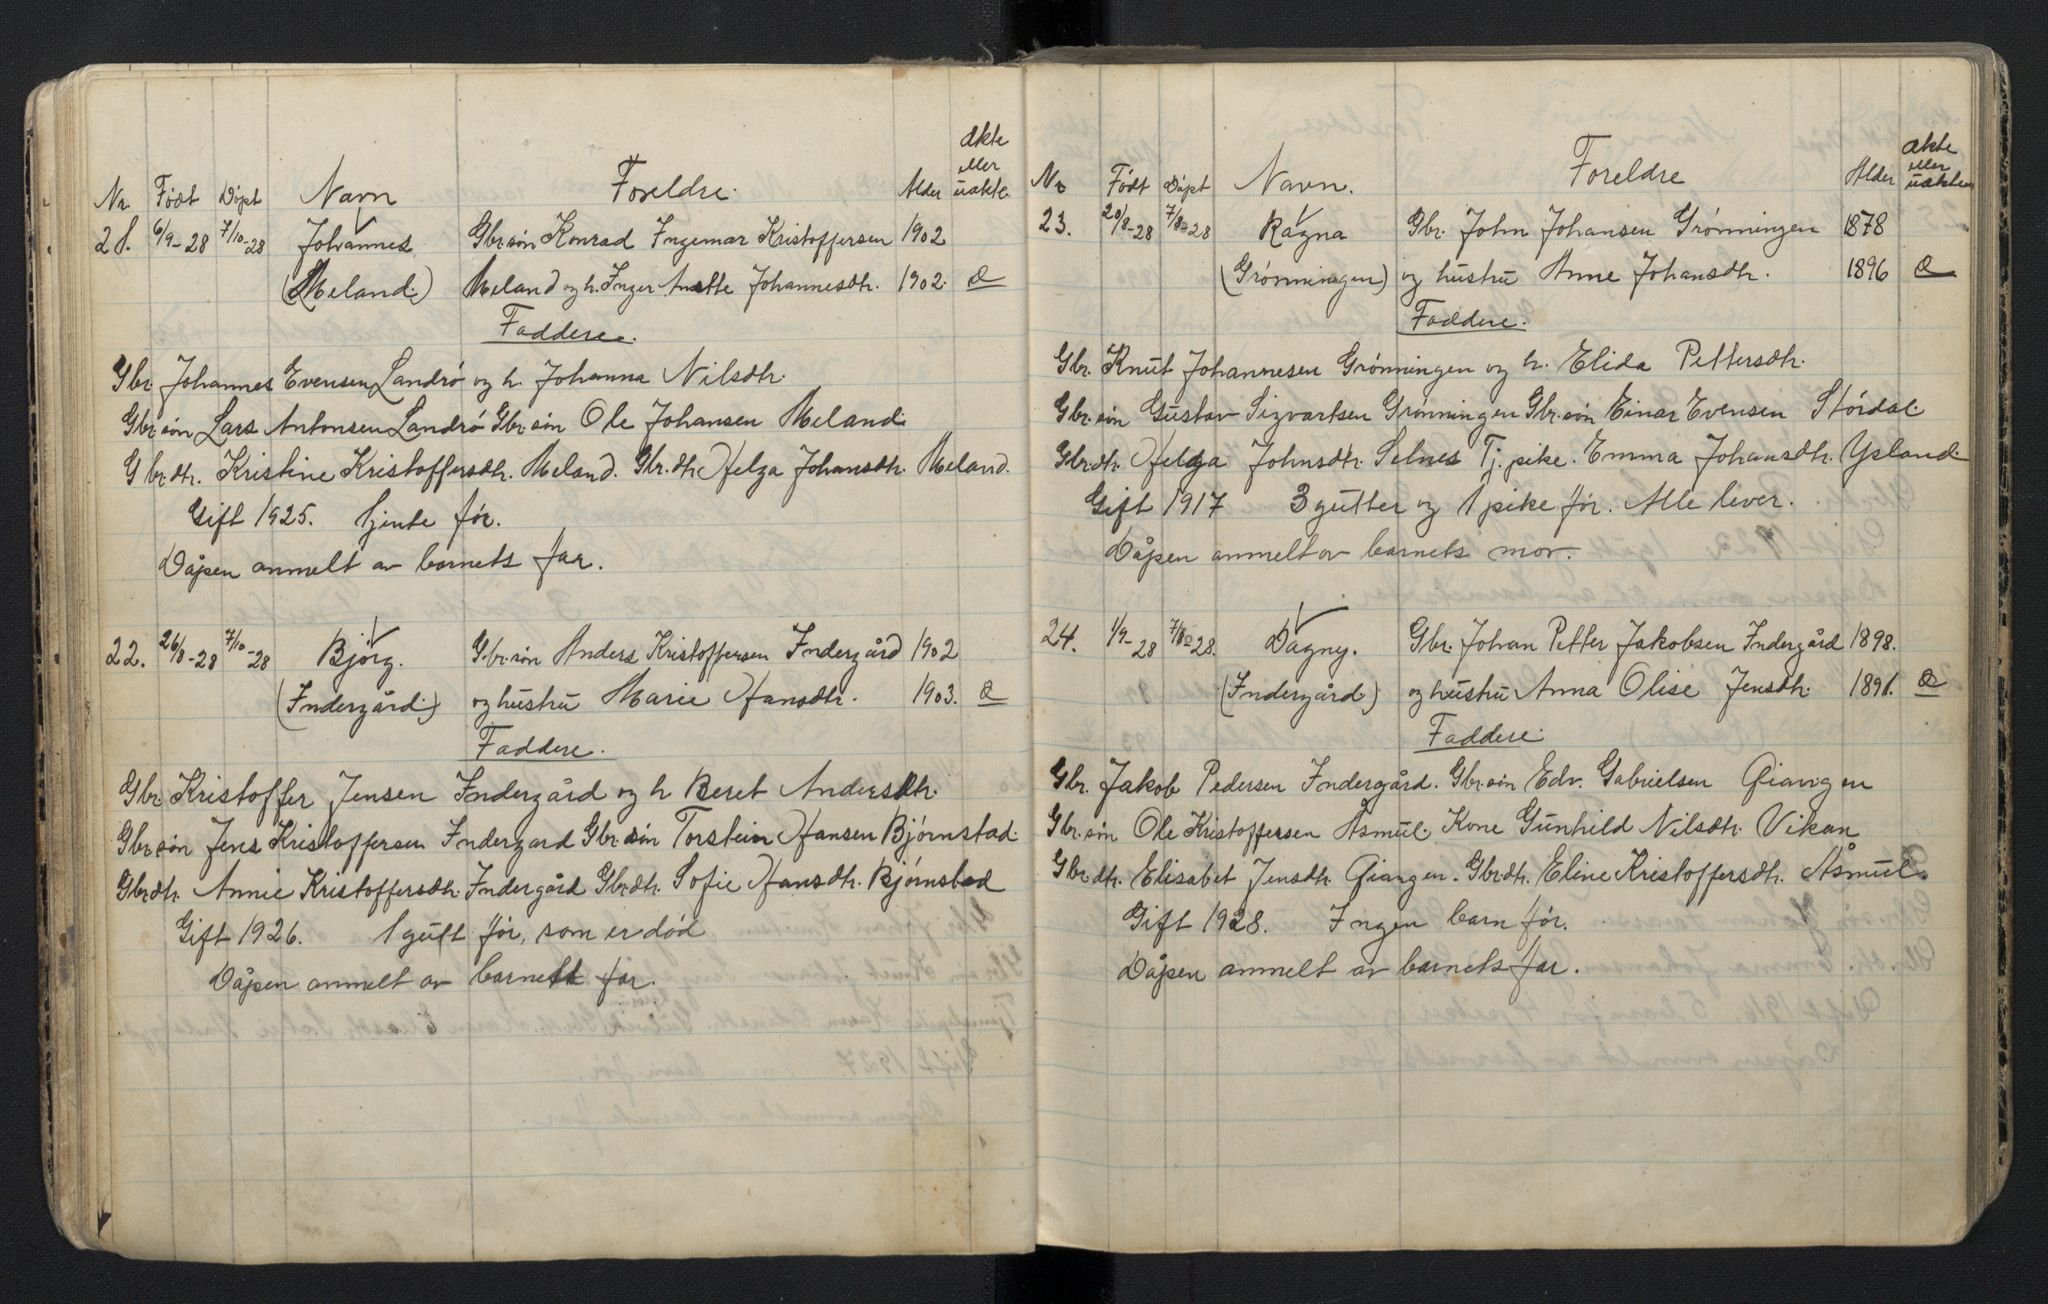 Nr. Født Døpt Navn Foreldre. Alder ekte eller uekte.
21. 6/9-28 7/10-28 Johannes Gbr.søn Konrad Ingemar Kristoffersen 1902
(Meland.) Meland og h. Inger Anette Johannesdtr. 1902. e
Faddere.
Gbr. Johannes Evensen Landrø og h. Johanna Nilsdtr.
Gbr.søn Lars Antonsen Landrø Gbr.søn Ole Johansen Meland.
Gbr.dtr. Kristine Kristoffersdtr. Meland. Gbr.dtr. Helga Johansdtr. Meland.
Gift 1925. 1 jente før.
Dåpen anmelt av barnets far.
22. 26/8-28 7/10-28 Bjørg. Gbr.søn Anders Kristoffersen Indergård 1902
(Indergård.) og hustru Marie Hansdtr. 1903. e
Faddere.
Gbr. Kristoffer Jensen Indergård og h Beret Andersdtr.
Gbr.søn Jens Kristoffersen Indergard Gbr.søn Torstein Hansen Bjørnstad.
Gbr.dtr. Annie Kristoffersdtr. Indergård Gbr.dtr. Sofie Hansdtr. Bjørnstad
Gift 1926. 1 gutt før, som er død
Dåpen anmelt av barnets far.
Nr Født Døpt Navn. Foreldre Alder ekte eller uekte
23. 20/8-28 28 Ragna Gbr. John Johansen Grønningen 1878
(Grønningen) og hustru Anne Johansdtr. 1896 e
Faddere.
Gbr. Knut Johannesen Grønningen og h. Elida Pettersdtr.
Gbr.søn Gustav Sigvartsen Grønningen Gbr.søn Einar Evensen Størdal.
Gbr.dtr. Helga Johnsdtr. Selnes Tj. pike. Emma Johansdtr. Ysland.
Gift 1917 3 gutter og 1 pike før. Alle lever.
Dåpen anmelt av barnets mor.
24. 1/9-28 28. Dagny. Gbr. Johan Petter Jakobsen Indergård 1898.
(Indergård.) og hustru Anna Olise Jensdtr. 1891. e
Faddere.
Gbr. Jakob Pedersen Indergård. Gbr.søn Edv. Gabrielsen Qiangen
Gbr.søn Ole Kristoffersen Åsmul. Kone Gunhild Nilsdtr. Vikan
Gbr.dtr. Elisabet Jensdtr. Qiangen. Gbr.dtr. Eline Kristoffersdtr. Åsmul.
Gift 1928. Ingen barn før.
Dåpen anmelt av barnets far.